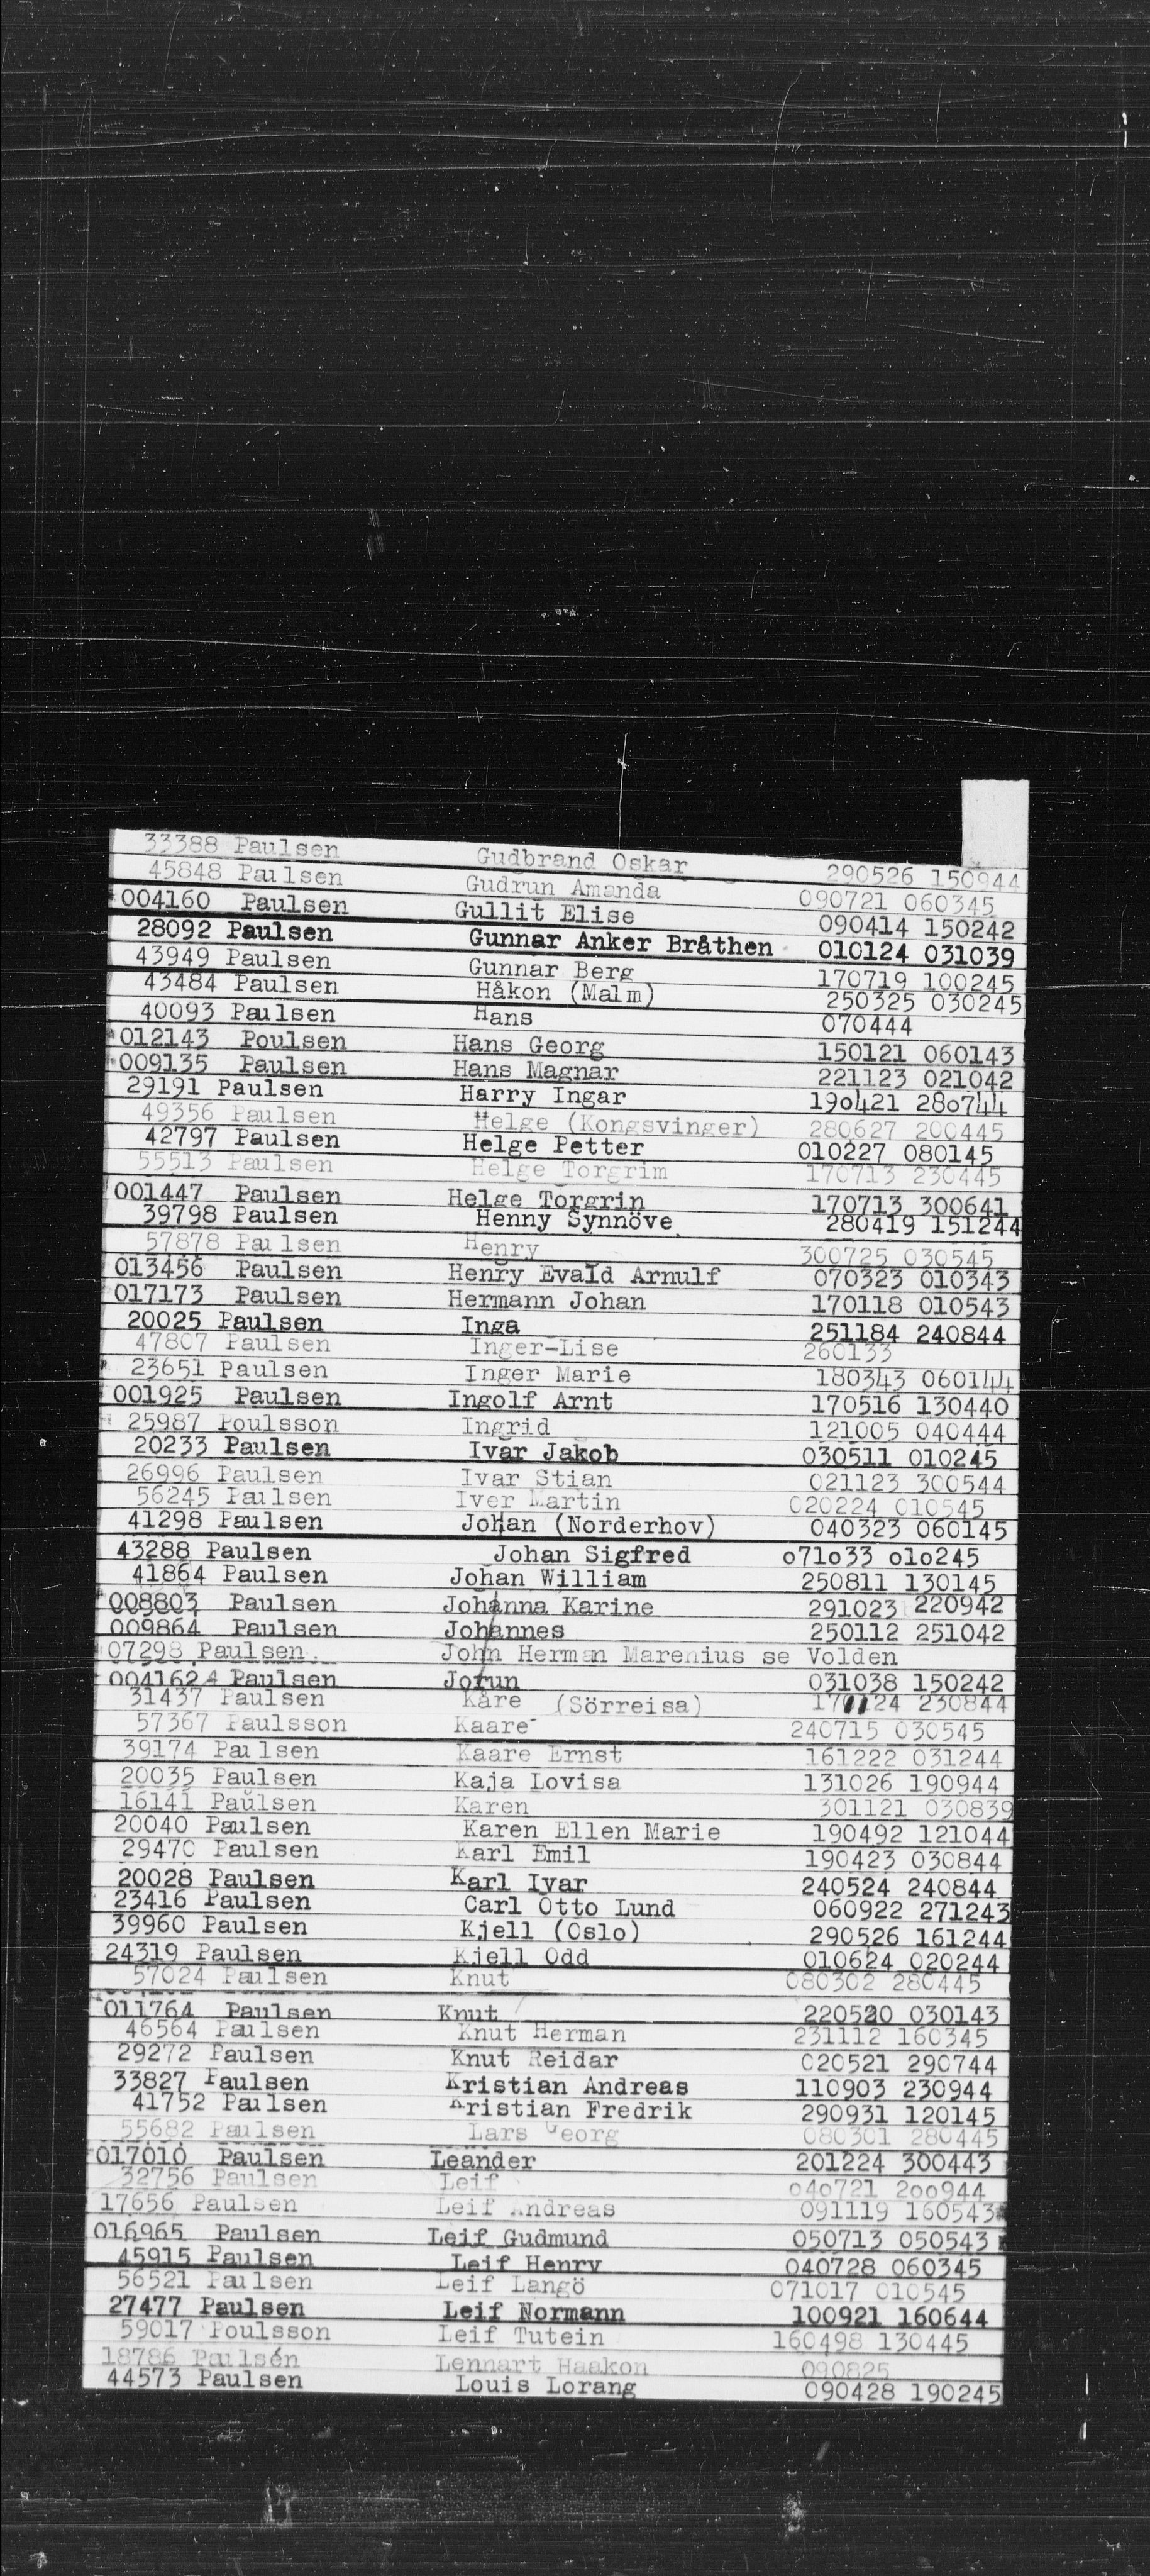 33388 Paulsen Gudbrand Oskar 290526 150944
45848 Paulsen Gudrun Amanda 090721 060345
004160 Paulsen Gullit Elise 090414 150242
28092 Paulsen Gunnar Anker Bråthen 010124 031039
43949 Paulsen Gunnar Berg 170719 100245
43484 Paulsen Håkon (Malm) 250325 030245
40093 Paulsen Hans 070444
012143 Poulsen Hans Georg 150121 060143
009135 Paulsen Hans Magnar 221123 021042
29191 Paulsen Harry Ingar 190421 280744
49356 Paulsen Helge (Kongsvinger) 280627 200445
42797 Paulsen Helge Petter 010227 080145
55513 Paulsen Helge Torgrim 170713 230445
001447 Paulsen Helge Torgrin 170713 300641
39798 Paulsen Henny Synnöve 280419 151244
57878 Paulsen Henry 300725 030545
013456 Paulsen Henry Evald Arnulf 070323 010343
017173 Paulsen Hermann Johan 170118 010543
20025 Paulsen Inga 251184 240844
47807 Paulsen Inger-Lise 260133
23651 Paulsen Inger Marie 180343 060144
001925 Paulsen Ingolf Arnt 170516 130440
25987 Poulsson Ingrid 121005 040444
20233 Paulsen Ivar Jakob 030511 010245
26996 Paulsen Ivar Stian 021123 300544
56245 Paulsen Iver Martin 020224 010545
41298 Paulsen Johan (Norderhov) 040323 060145
43288 Paulsen Johan Sigfred 071033 010245
41864 Paulsen Johan William 250811 130145
008803 Paulsen Johanna Karine 291023 220942
009864 Paulsen Johannes 250112 251042
07298 Paulsen. John Herman Marenius se Volden
004162 Paulsen Jorun 031038 150242
31437 Paulsen Kåre (Sörreisa) 230844
57367 Paulsson Kaare 240715 030545
39174 Paulsen Kaare Ernst 161222 031244
20035 Paulsen Kaja Lovisa 131026 190944
16141 Paulsen Karen 301121 030839
20040 Paulsen Karen Ellen Marie 190492 121044
29470 Paulsen Karl Emil 190423 030844
20028 Paulsen Karl Ivar 240524 240844
23416 Paulsen Carl Otto Lund 060922 271243
39960 Paulsen Kjell (Oslo) 290526 161244
24319 Paulsen Kjell Odd 010624 020244
57024 Paulsen Knut 080302 280445
011764 Paulsen Knut 220520 030143
46564 Paulsen Knut Herman 231112 160345
29272 Paulsen Knut Reidar 020521 290744
33827 Paulsen Kristian Andreas 110903 230944
41752 Paulsen Kristian Fredrik 290931 120145
55682 Paulsen Lars Georg 080301 280445
017010 Paulsen Leander 201224 300443
32756 Paulsen Leif 040721 200944
17656 Paulsen Leif Andreas 091119 160543
016965 Paulsen Leif Gudmund 050713 050543
45915 Paulsen Leif Henry 040728 060345
56521 Paulsen Leif Langö 071017 010545
27477 Paulsen Leif Normann 100921 160644
59017 Poulsson Leif Tutein 160498 130445
18786 Paulsén Lennart Haakon 090825
44573 Paulsen Louis Lorang 090428 190245